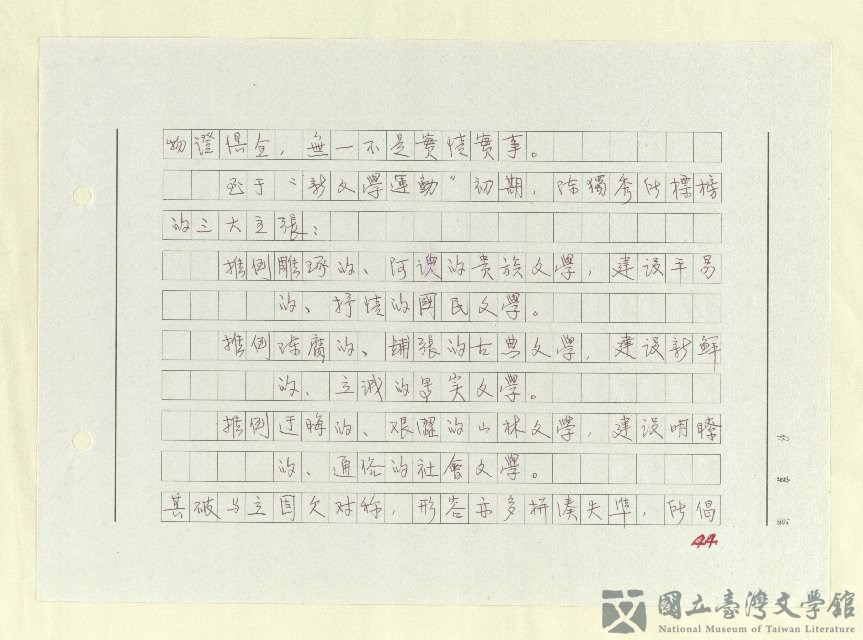 物證俱全，無一不是實情實事。
至于“新文學運動”初期，陈獨秀所標榜
的三大主張：
推倒雕琢的、阿諛的贵族文學，建设平易
的、抒情的國民文學。
推倒陈腐的、鋪張的古典文學，建设新鮮
的、立诚的写实文學。
推倒迂晦的、艰澀的山林文學，建设明瞭
的、通俗的社會文學。
其破与立固欠对称，形容亦多拼湊失準，所倡
44
國立臺灣文學館
National Museum of Taiwan Literature